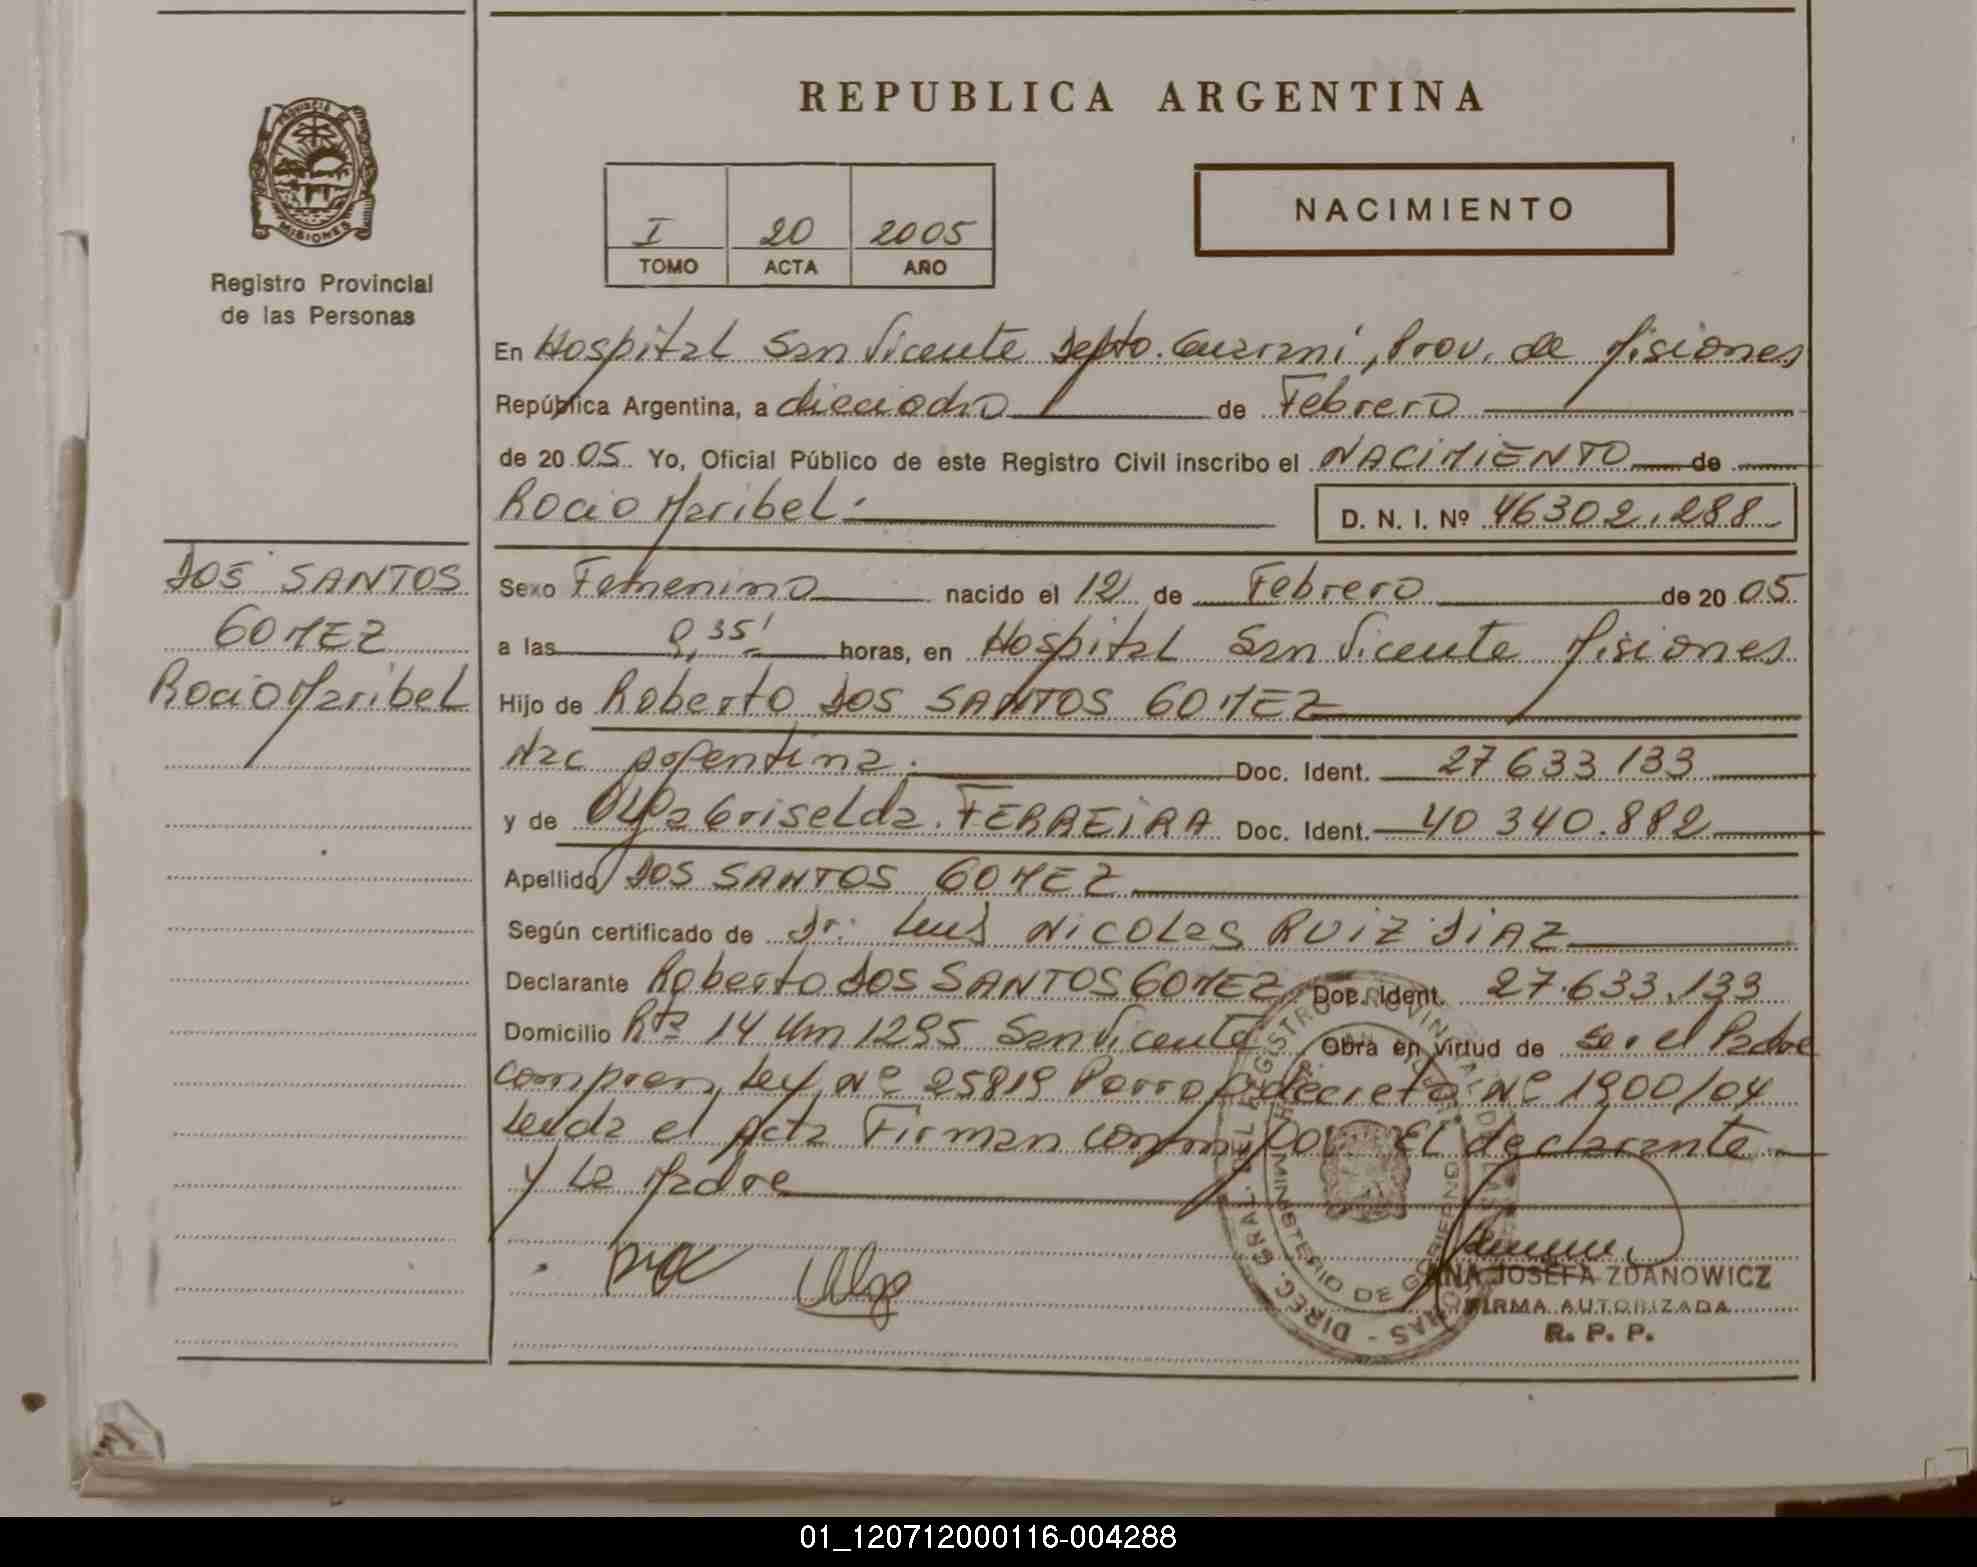 REPUBLICA ARGENTINA
PROVINCIA DE MISIONES
Registro Provincial
de las Personas
I 20 2005
TOMO ACTA AÑO
NACIMIENTO
En Hospital San Vicente Depto. Guarani, Prov. de Misiones
República Argentina, a dieciocho de Febrero
de 2005. Yo, Oficial Público de este Registro Civil inscribo el NACIMIENTO de
Rocio Maribel.
D. N. I. Nº 46302.288
DOS SANTOS
GOMEZ
Rocio Maribel
Sexo Femenino nacido el 12 de Febrero de 2005
a las 8,35' horas, en Hospital San Vicente Misiones
Hijo de Roberto DOS SANTOS GOMEZ
Nac Argentina. Doc. Ident. 27 633 133
y de Olga Griselda. FERREIRA Doc. Ident. 40 340.882
Apellido DOS SANTOS GOMEZ
Según certificado de Dr. Luis Nicolas RUIZ DIAZ
Declarante Roberto DOS SANTOS GOMEZ Doc. Ident. 27.633.133
Domicilio Rta 14 Km 1295 San Vicente Obra en virtud de ser el Padre
compren, Ley Nº 25819 Porro, decreto Nº 1900/04
Leida el Acta Firman conmigo El declarante
y La Madre
Olga
DIREC. GRAL. DEL REGISTRO PROVINCIAL DE LAS PERSONAS
MINISTERIO DE GOBIERNO
ANA JOSEFA ZDANOWICZ
FIRMA AUTORIZADA
R. P. P.
01_120712000116-004288